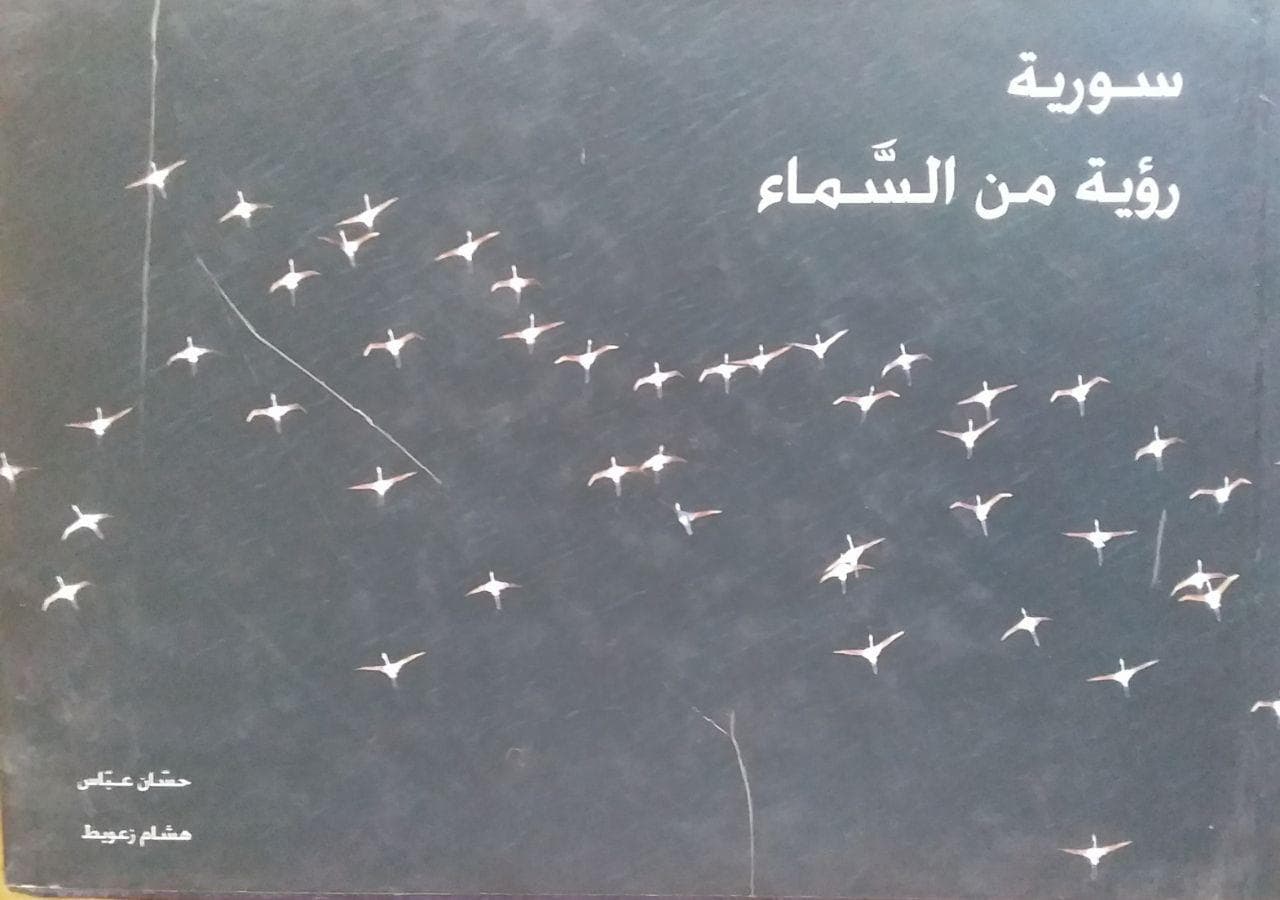 سورية
رؤية من السَّماء
حسّان عبّاس
هشام زعويط